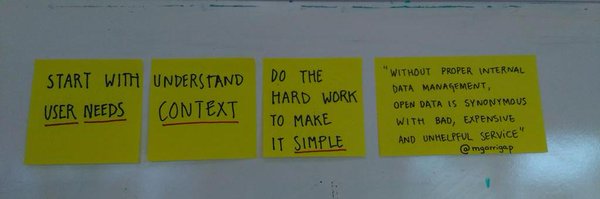 START WITH
USER NEEDS
UNDERSTAND
CONTEXT
DO THE
HARD WORK
TO MAKE
IT SIMPLE
"WITHOUT PROPER INTERNAL
DATA MANAGEMENT,
OPEN DATA IS SYNONYMOUS
WITH BAD, EXPENSIVE
AND UNHELPFUL SERVICE"
@mgarrigap